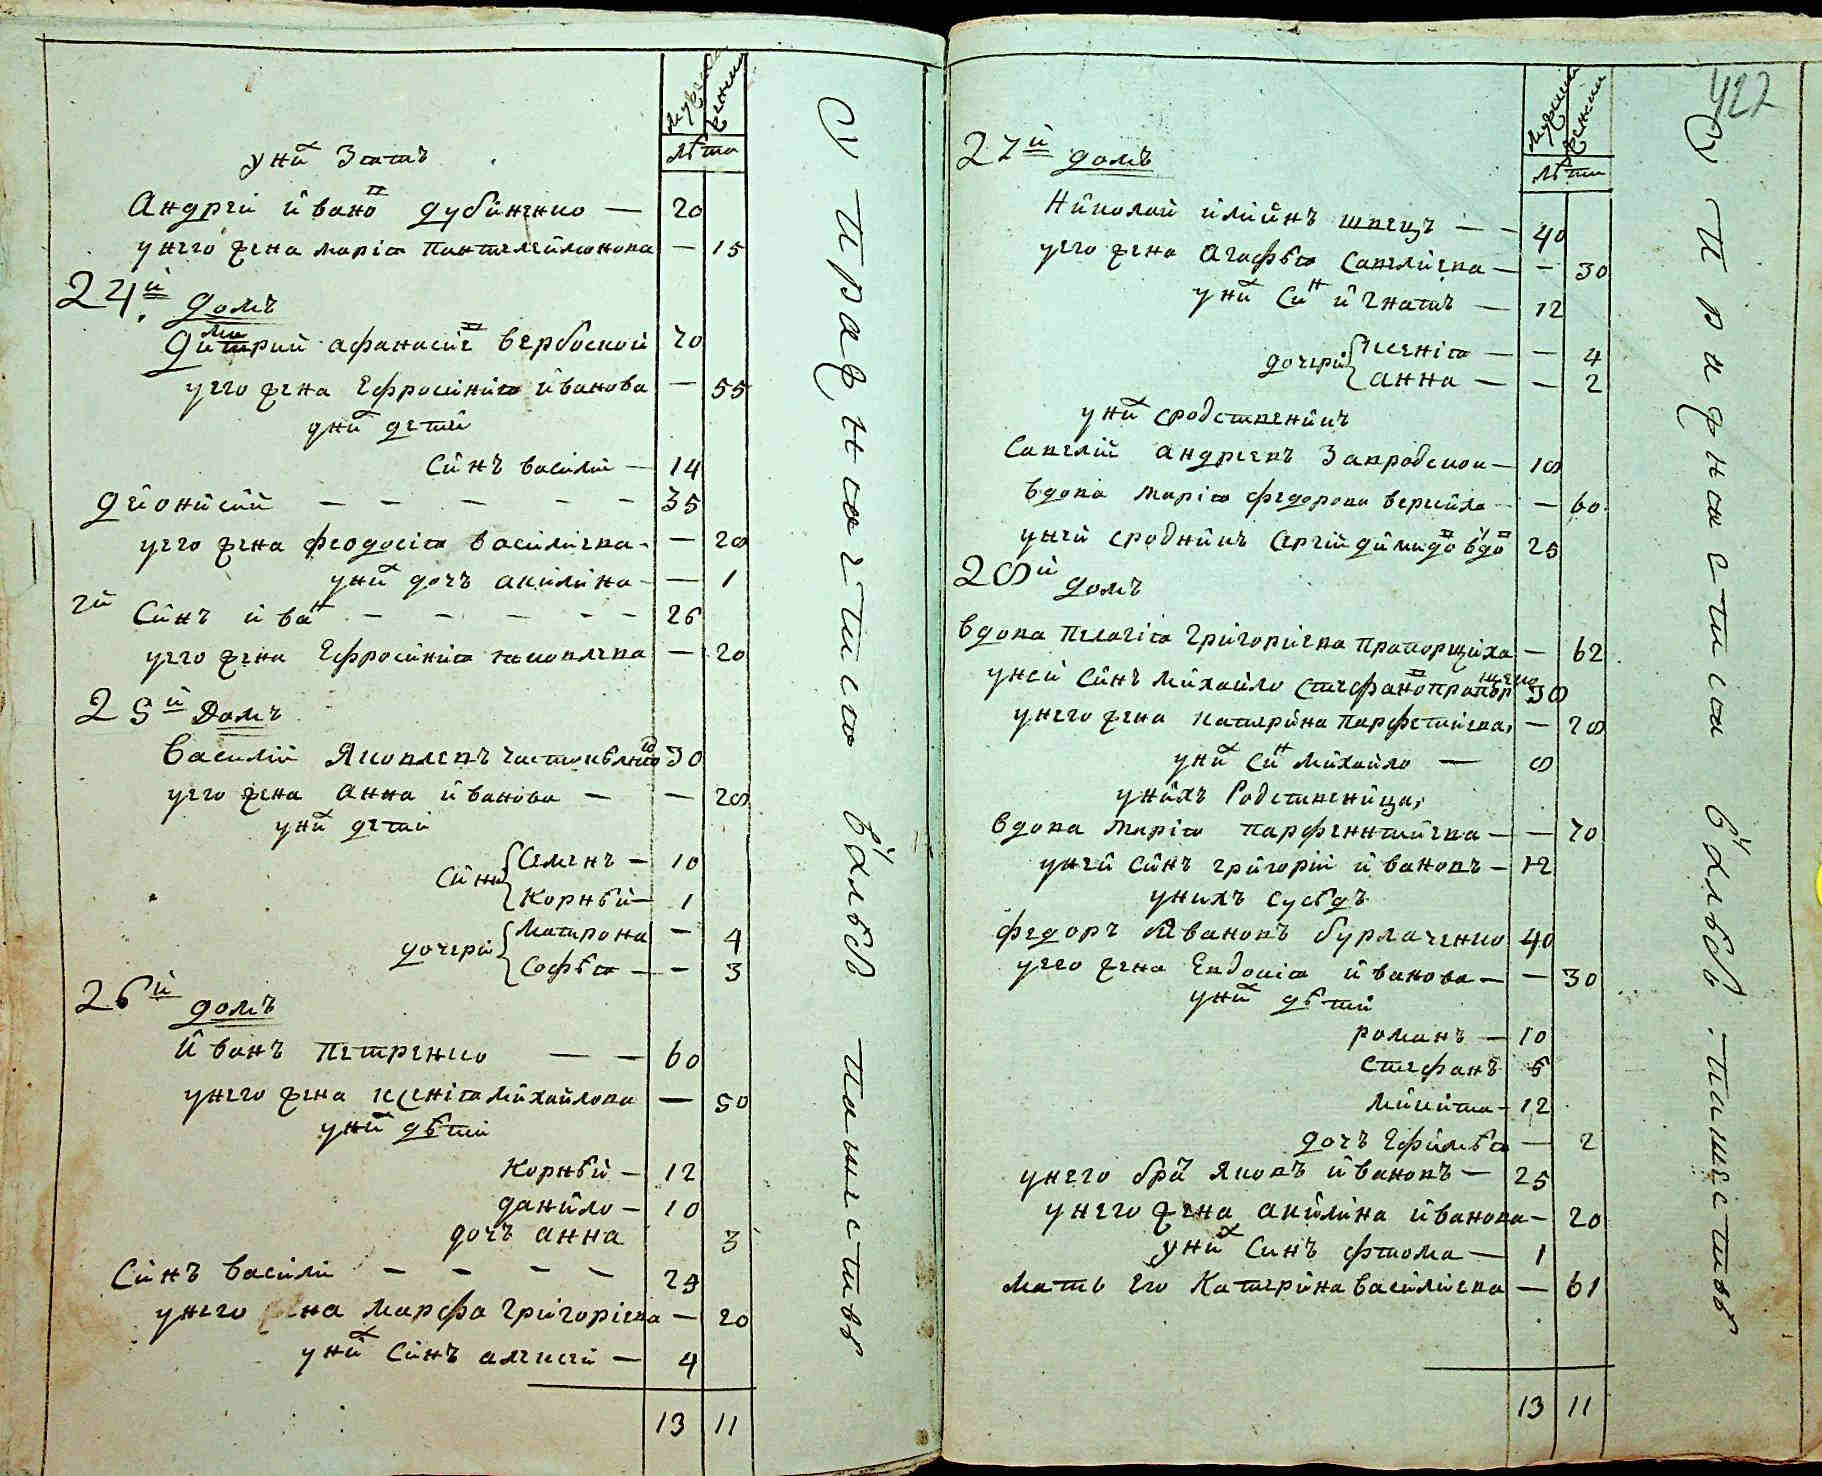 мужеска женски
лѣта
у нихъ Зятъ
Андрей Ивановъ дубиненко — 20
у него жена Марія Пантелеймонова — 15
24й домъ
Димитрий Афанасіевъ Вербоской 70
у его жена Ефросинія Иванова — 55
у нихъ детей
Синъ Василій — 14
Дионисий — — — — — 35
у его жена Феодосія Василіева — 28
у нихъ дочъ Акилина — 1
2й Синъ Иванъ — — — — — 26
у его жена Ефросинія Яковлева — 20
25й Домъ
Василій Яковлевъ 30
у его жена Анна Иванова — — 28
у нихъ детей
Сини Семенъ — 10
Корнѣй — 1
дочери Матрона — 4
Софѣя — — 3
26й домъ
Иванъ Петренко — — 60
у него жена Ксенія Михайлова — 50
у нихъ дѣтей
Корнѣй — 12
данило — 10
дочъ анна 3
Синъ Василій — — — — 29
у него жена Марфа Григоріева — 20
у нихъ Синъ алексій — 4
13 11
Упражност
въ хлѣбопашествѣ
427
мужски женски
лѣта
27й домъ
Николай Иліинъ швецъ — — 40
у его жена Агафѣя Савеліева — — 30
у нихъ Синъ Игнатъ — 12
дочери Ксенія — — 4
анна — — 2
у нихъ сродственикъ
Савелій андреевъ Завродской — 18
Вдова Марія Федорова — 60
у ней сродникъ Сергій 25
28й домъ
Вдова Пелагія Григоріева Прапорщиха — 62
у ней Синъ Михайло Стефановъ прапорщенко 38
у него жена Катерина Парфентиева — 28
у нихъ Синъ Михайло — 8
у нихъ Родственица
Вдова Марія Парфентиева — — 70
у ней Синъ Григорій Ивановъ — 12
у нихъ Сусѣдъ
Федоръ Ивановъ бурлаченко 40
у его жена Евдокія Иванова — — 30
у нихъ дѣтей
романъ — 10
Стефанъ 5
Микита — 12
дочъ Ефимѣя — 2
у него братъ Яковъ Ивановъ — 25
у него жена акилина Иванова — 20
у нихъ Синъ Фтома — 1
Мать Его Катерина Василіева — 61
13 11
Упражност
въ хлѣбопашествѣ